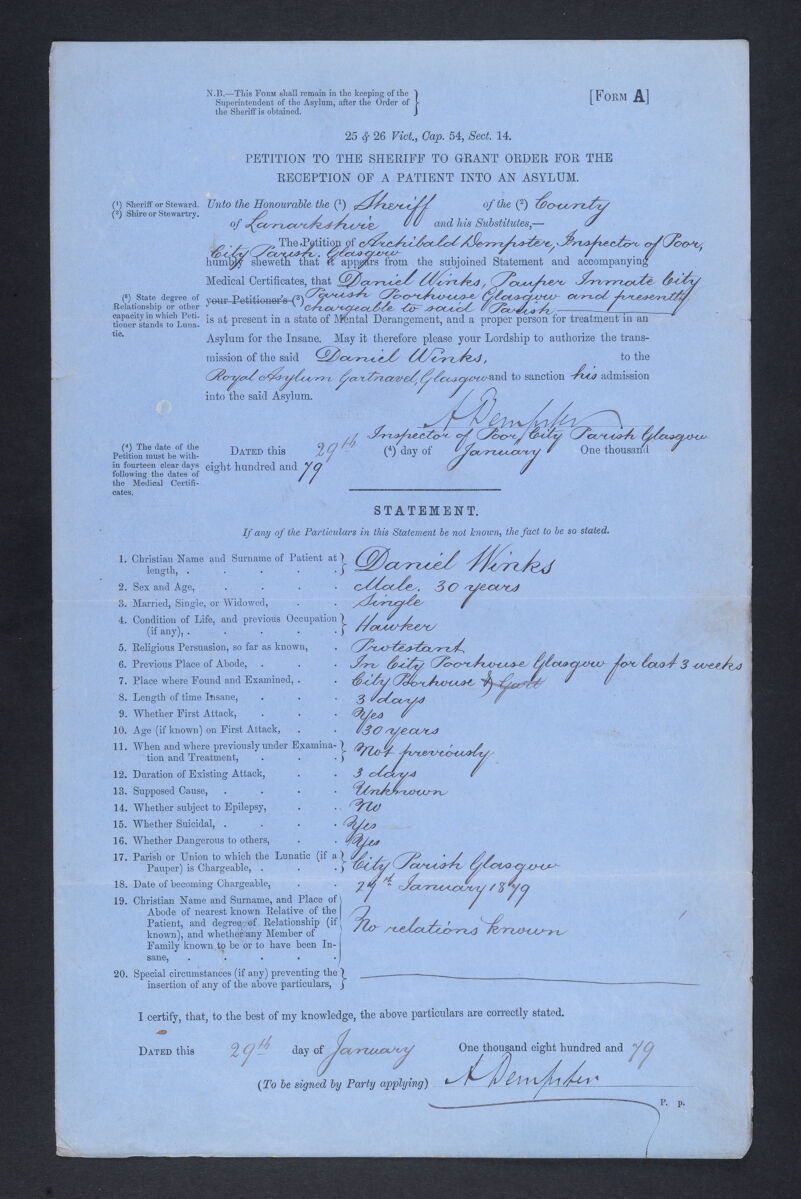 N.B.—This Form shall remain in the keeping of the
Superintendent of the Asylum, after the Order of
the Sheriff is obtained.
[Form A]
25 & 26 Vict., Cap. 54, Sect. 14.
PETITION TO THE SHERIFF TO GRANT ORDER FOR THE
RECEPTION OF A PATIENT INTO AN ASYLUM.
(1) Sheriff or Steward.
(2) Shire or Stewartry.
Unto the Honourable the (1) Sheriff of the (2) County
of Lanarkshire and his Substitutes,—
The Petition of Archibald Dempster, Inspector of Poor,
City Parish, Glasgow
humbly sheweth that it appears from the subjoined Statement and accompanying
Medical Certificates, that Daniel Winks, Pauper Inmate City
(3) State degree of
Relationship or other
capacity in which Peti-
tioner stands to Luna-
tic.
your Petitioner's (3) Parish Poorhouse Glasgow and presently
chargeable to said Parish
is at present in a state of Mental Derangement, and a proper person for treatment in an
Asylum for the Insane. May it therefore please your Lordship to authorize the trans-
mission of the said Daniel Winks, to the
Royal Asylum Gartnavel, Glasgow and to sanction his admission
into the said Asylum.
A Dempster
Inspector of Poor, City Parish Glasgow
(4) The date of the
Petition must be with-
in fourteen clear days
following the dates of
the Medical Certifi-
cates.
Dated this 29th (4) day of January One thousand
eight hundred and 79
STATEMENT.
If any of the Particulars in this Statement be not known, the fact to be so stated.
1. Christian Name and Surname of Patient at
length, . . . . . Daniel Winks
2. Sex and Age, . . . . Male. 30 years
3. Married, Single, or Widowed, . . Single
4. Condition of Life, and previous Occupation
(if any), . . . . . Hawker
5. Religious Persuasion, so far as known, . Protestant
6. Previous Place of Abode, . . . In City Poorhouse Glasgow for last 3 weeks
7. Place where Found and Examined, . . City Poorhouse
8. Length of time Insane, . . . 3 days
9. Whether First Attack, . . . Yes
10. Age (if known) on First Attack, . . 30 years
11. When and where previously under Examina-
tion and Treatment, . . . Not previously
12. Duration of Existing Attack, . . 3 days
13. Supposed Cause, . . . . Unknown
14. Whether subject to Epilepsy, . . No
15. Whether Suicidal, . . . . Yes
16. Whether Dangerous to others, . . Yes
17. Parish or Union to which the Lunatic (if a
Pauper) is Chargeable, . . . City Parish Glasgow
18. Date of becoming Chargeable, . . 29th January 1879
19. Christian Name and Surname, and Place of
Abode of nearest known Relative of the
Patient, and degree of Relationship (if
known), and whether any Member of
Family known to be or to have been In-
sane, . . . . . No relations known
20. Special circumstances (if any) preventing the
insertion of any of the above particulars,
I certify, that, to the best of my knowledge, the above particulars are correctly stated.
Dated this 29th day of January One thousand eight hundred and 79
(To be signed by Party applying) A Dempster
P. p.